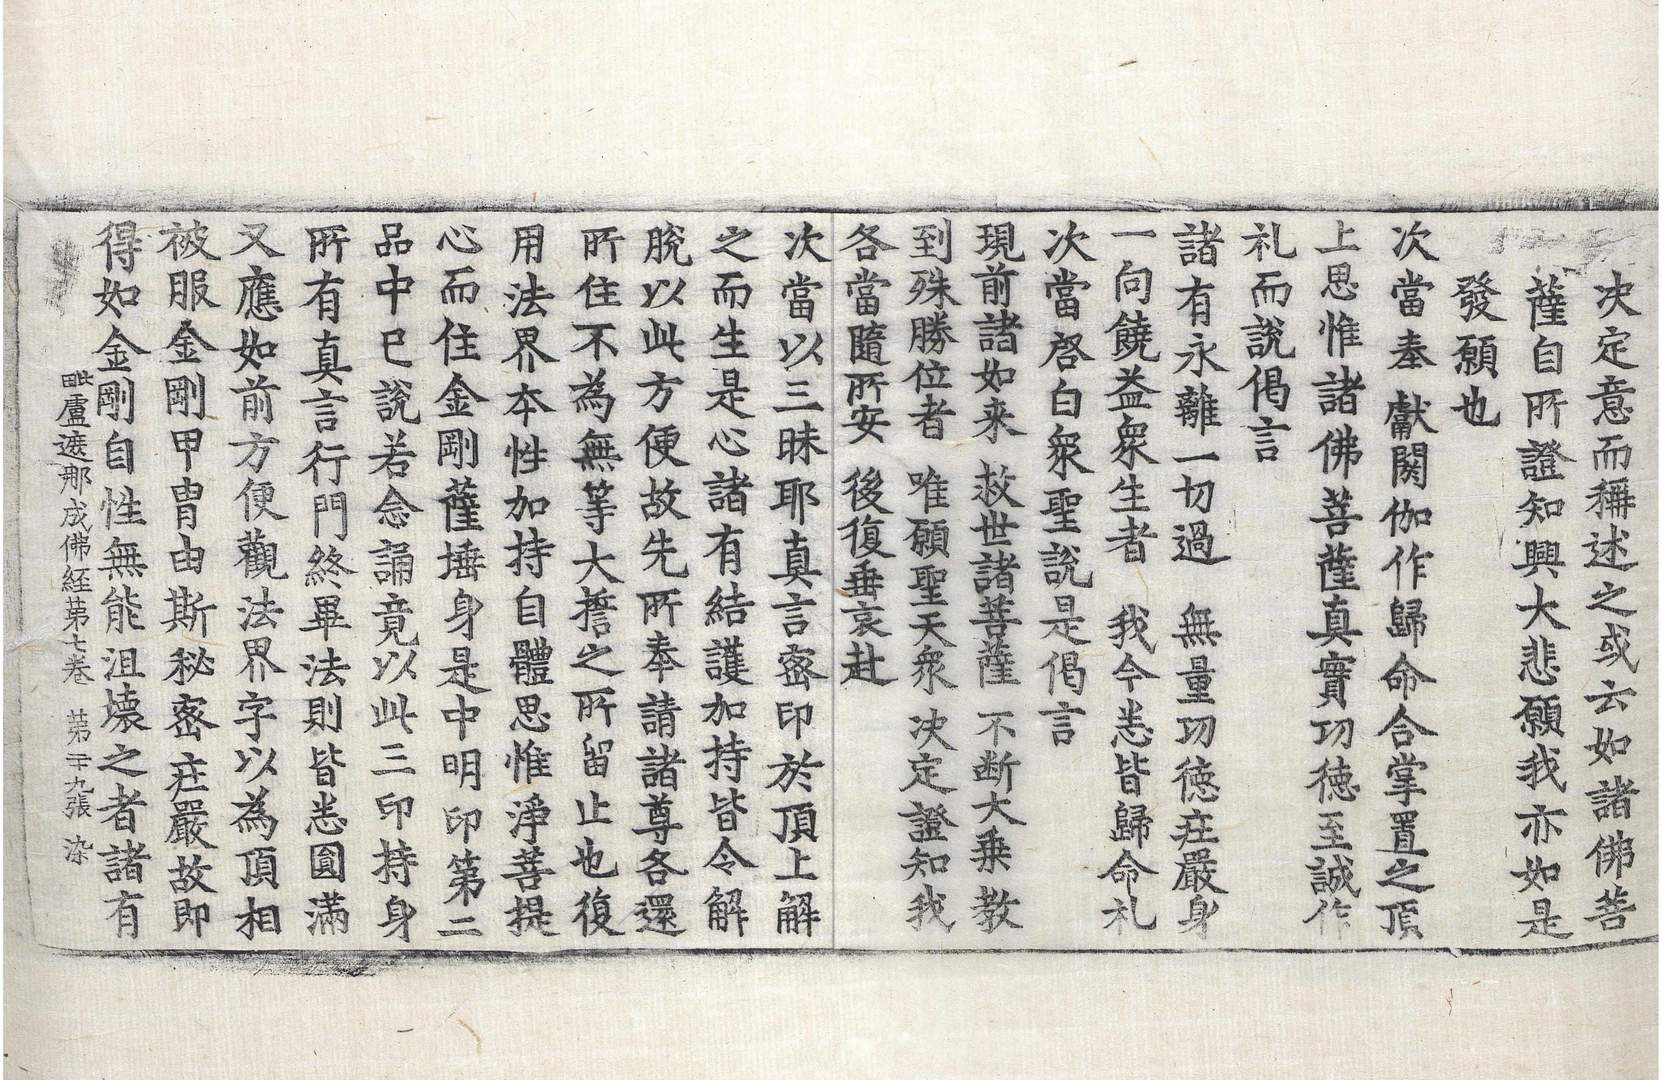 决定意而稱述之或云如諸佛菩
薩自所證知興大悲願我亦如是
發願也
次當奉獻閼伽作歸命合掌置之頂
上思惟諸佛菩薩真實功徳至誠作
礼而說偈言
諸有永離一切過　無量功徳莊嚴身
一向饒益衆生者　我今悉皆歸命礼
次當啓白衆聖說是偈言
現前諸如来　救世諸菩薩　不断大乗教
到殊勝位者　唯願聖天衆　决定證知我
各當隨所安　後復垂哀赴
次當以三昧耶真言宻印於頂上解
之而生是心諸有結護加持皆令解
脫以此方便故先所奉請諸尊各還
所住不為無等大誓之所留止也復
用法界本性加持自體思惟淨菩提
心而住金剛薩埵身是中明印第二
品中已說若念誦竟以此三印持身
所有真言行門終畢法則皆悉圓滿
又應如前方便觀法界字以為頂相
被服金剛甲胄由斯秘宻莊嚴故即
得如金剛自性無能沮壞之者諸有
毗盧遮那成佛經第七卷　第二十九張　染